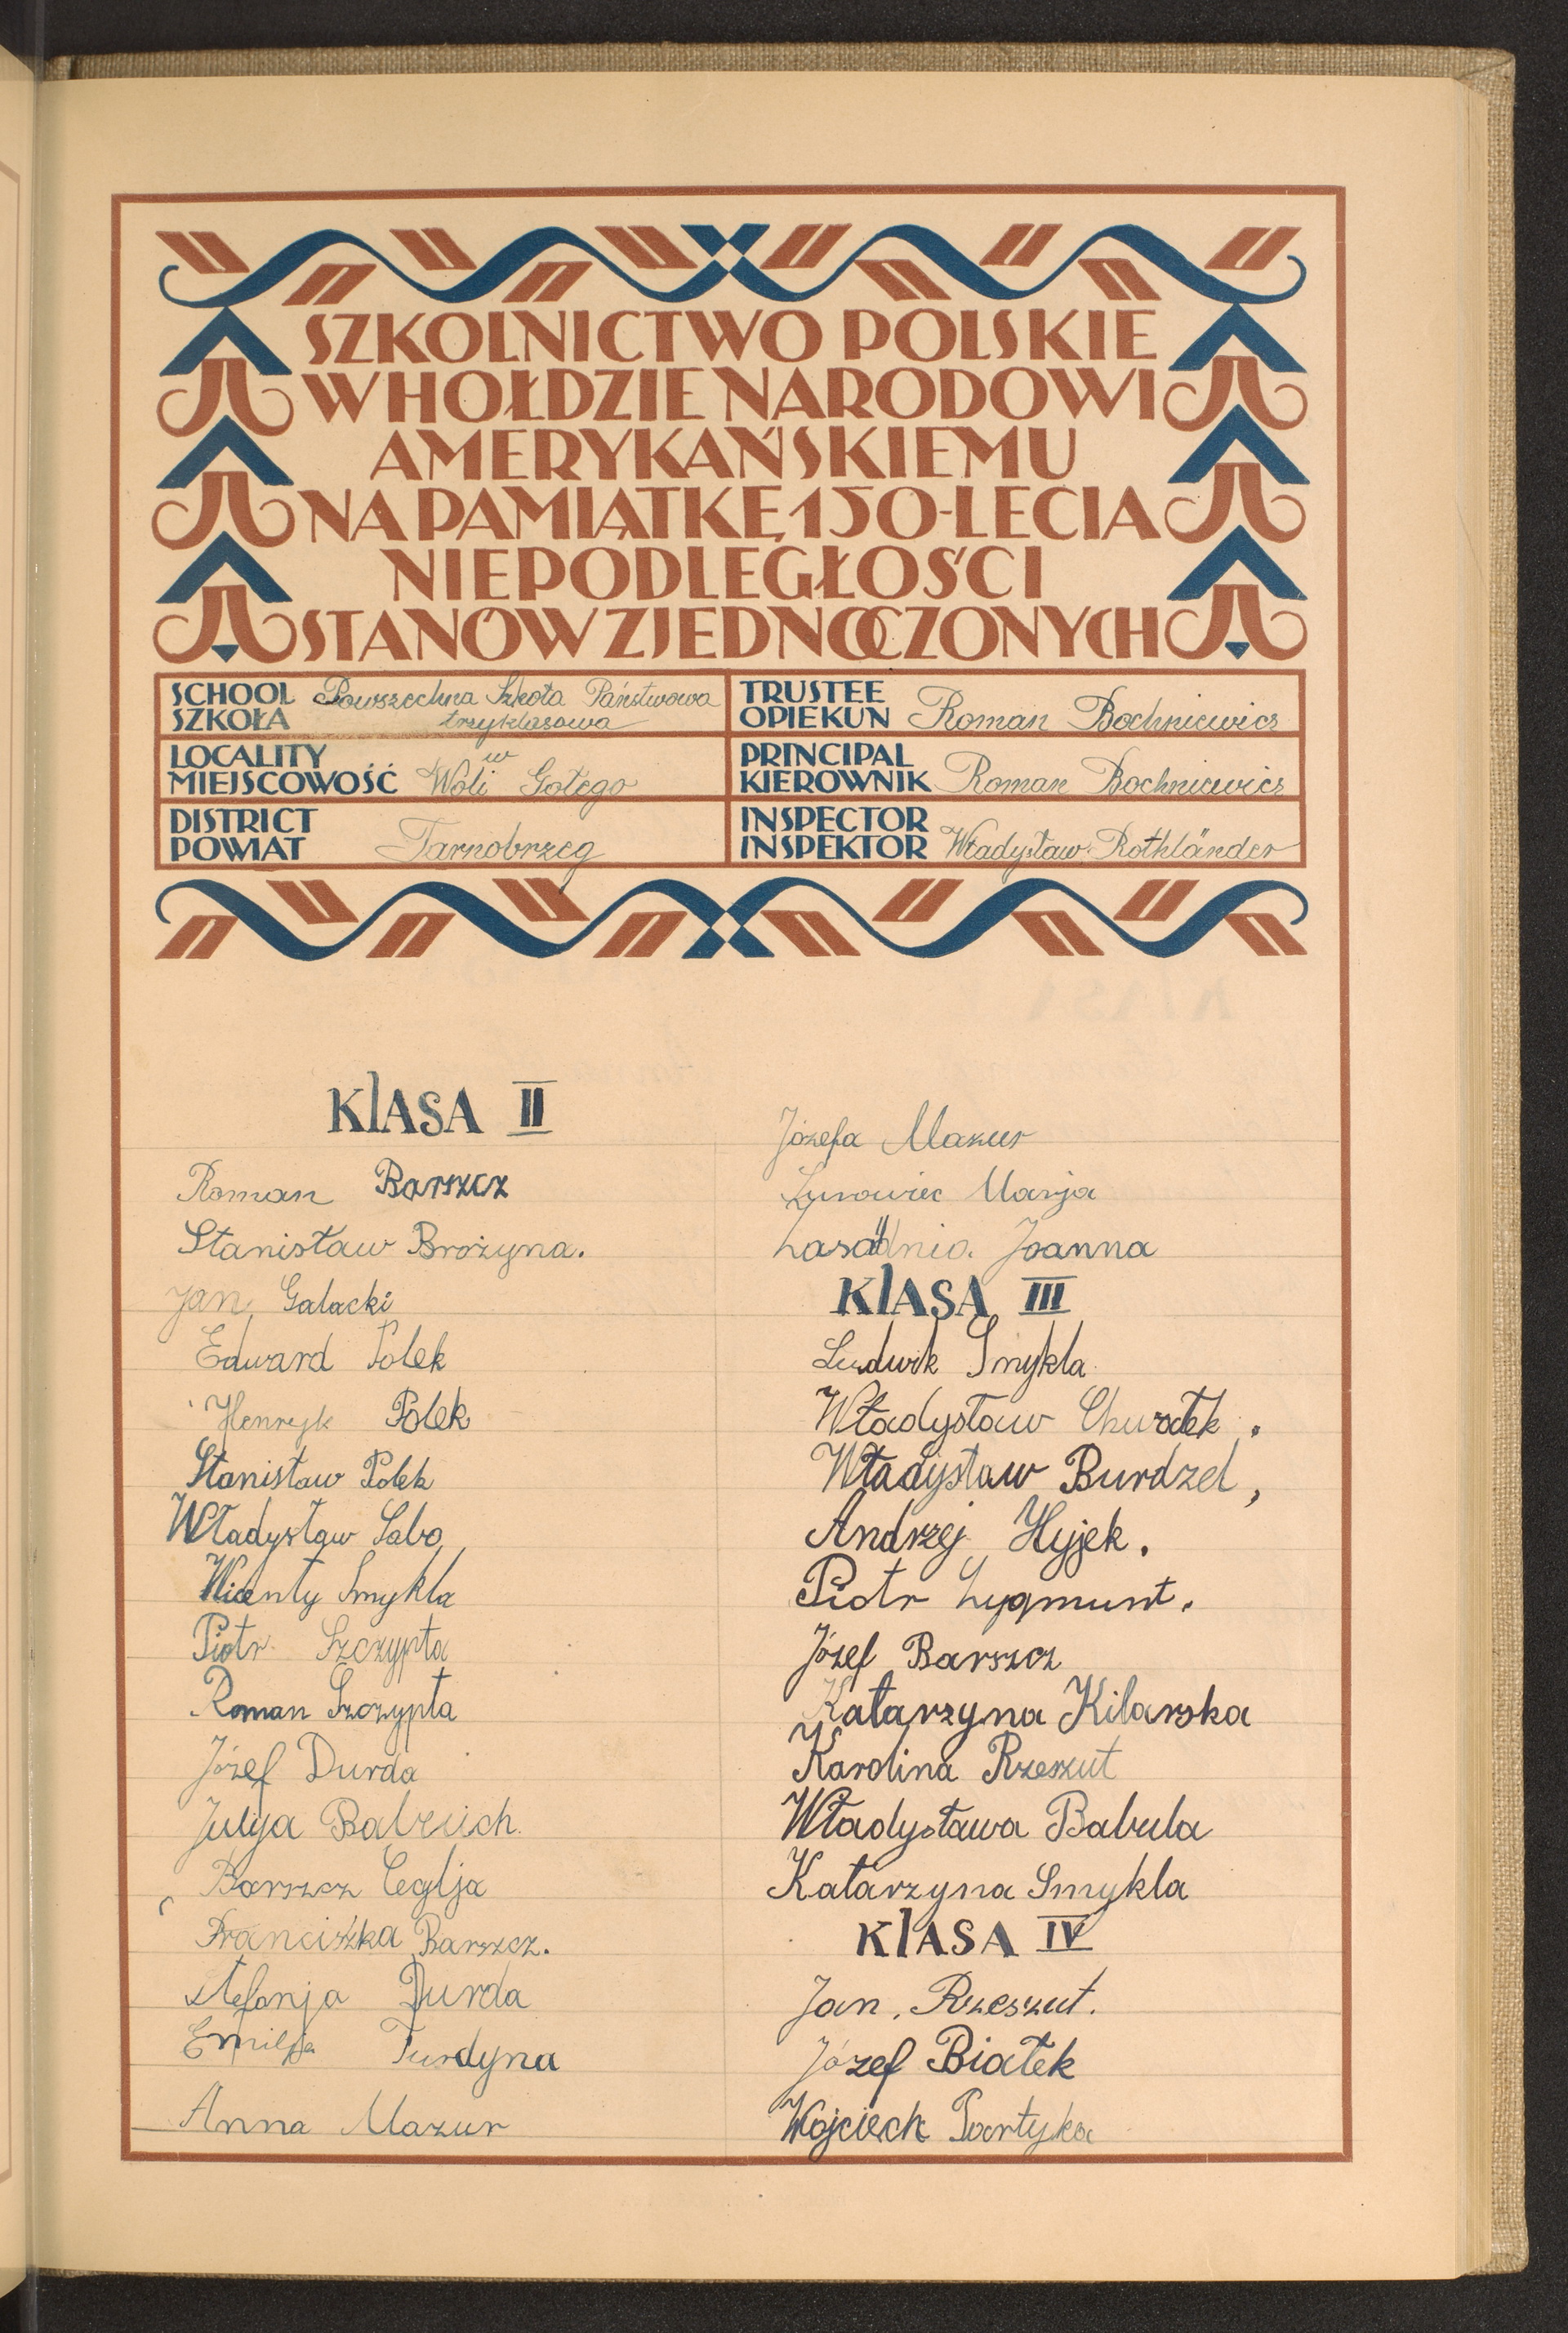 SZKOLNICTWO POLSKIE
W HOŁDZIE NARODOWI
AMERYKAŃSKIEMU
NA PAMIĄTKĘ 150-LECIA
NIEPODLEGŁOŚCI
STANÓW ZJEDNOCZONYCH
SCHOOL
SZKOŁA
Powszechna Szkoła Państwowa
trzyklasowa
LOCALITY
MIEJSCOWOŚĆ
w
Woli Gołego
DISTRICT
POWIAT
Tarnobrzeg
TRUSTEE
OPIEKUN
Roman Bochniewicz
PRINCIPAL
KIEROWNIK
Roman Bochniewicz
INSPECTOR
INSPEKTOR
Władysław Rothländer
KlASA II
Roman Barszcz
Stanisław Brożyna.
Jan Galacki
Edward Polek
Henryk Polek
Stanisław Polek
Władysław Sabo
Wicenty Smykla
Piotr Szczypta
Roman Szczypta
Józef Durda
Julja
Barszcz Ceglja
Franciszka Barszcz.
Stefanja Durda
Emilja Turdyna
Anna Mazur
Józefa Mazur
Żurowiec Marja
Joanna
KlASA III
Ludwik Smykla
Władysław
Władysław Burdzel,
Andrzej Hyjek.
Piotr Zygmunt.
Józef Barszcz
Katarzyna Kilarska
Karolina Rzeszut
Władysława Babula
Katarzyna Smykla
KlASA IV
Jan. Rzeszut.
Józef Białek
Wojciech Partyka